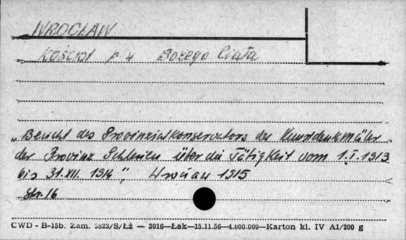 WROCŁAW
Kościół p.w Bożego Ciała
„Bericht des Provinzialkonservators der Kunstdenkmäler
der Provinz Schlesien über die Tätigkeit vom 1.I.1913
bis 31.XII. 1914", Wrocław 1915
Str. 16
CWD - B-15b. Zam. 5823/S/Łż — 2016—Łak—15.11.56—4.000.000—Karton kl. IV A1/200 g